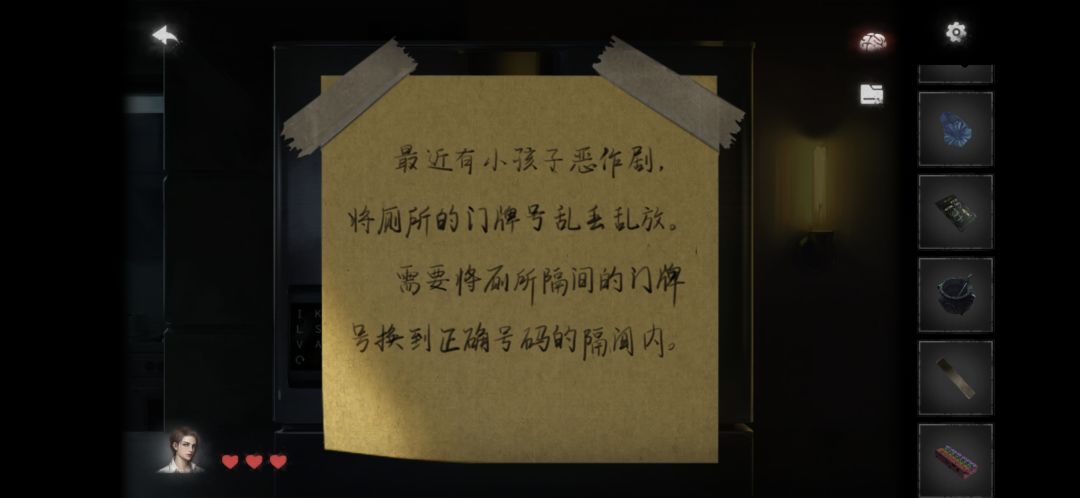 最近有小孩子恶作剧，
将厕所的门牌号乱丢乱放。
需要将厕所隔间的门牌
号换到正确号码的隔间内。
I K
L S
V A